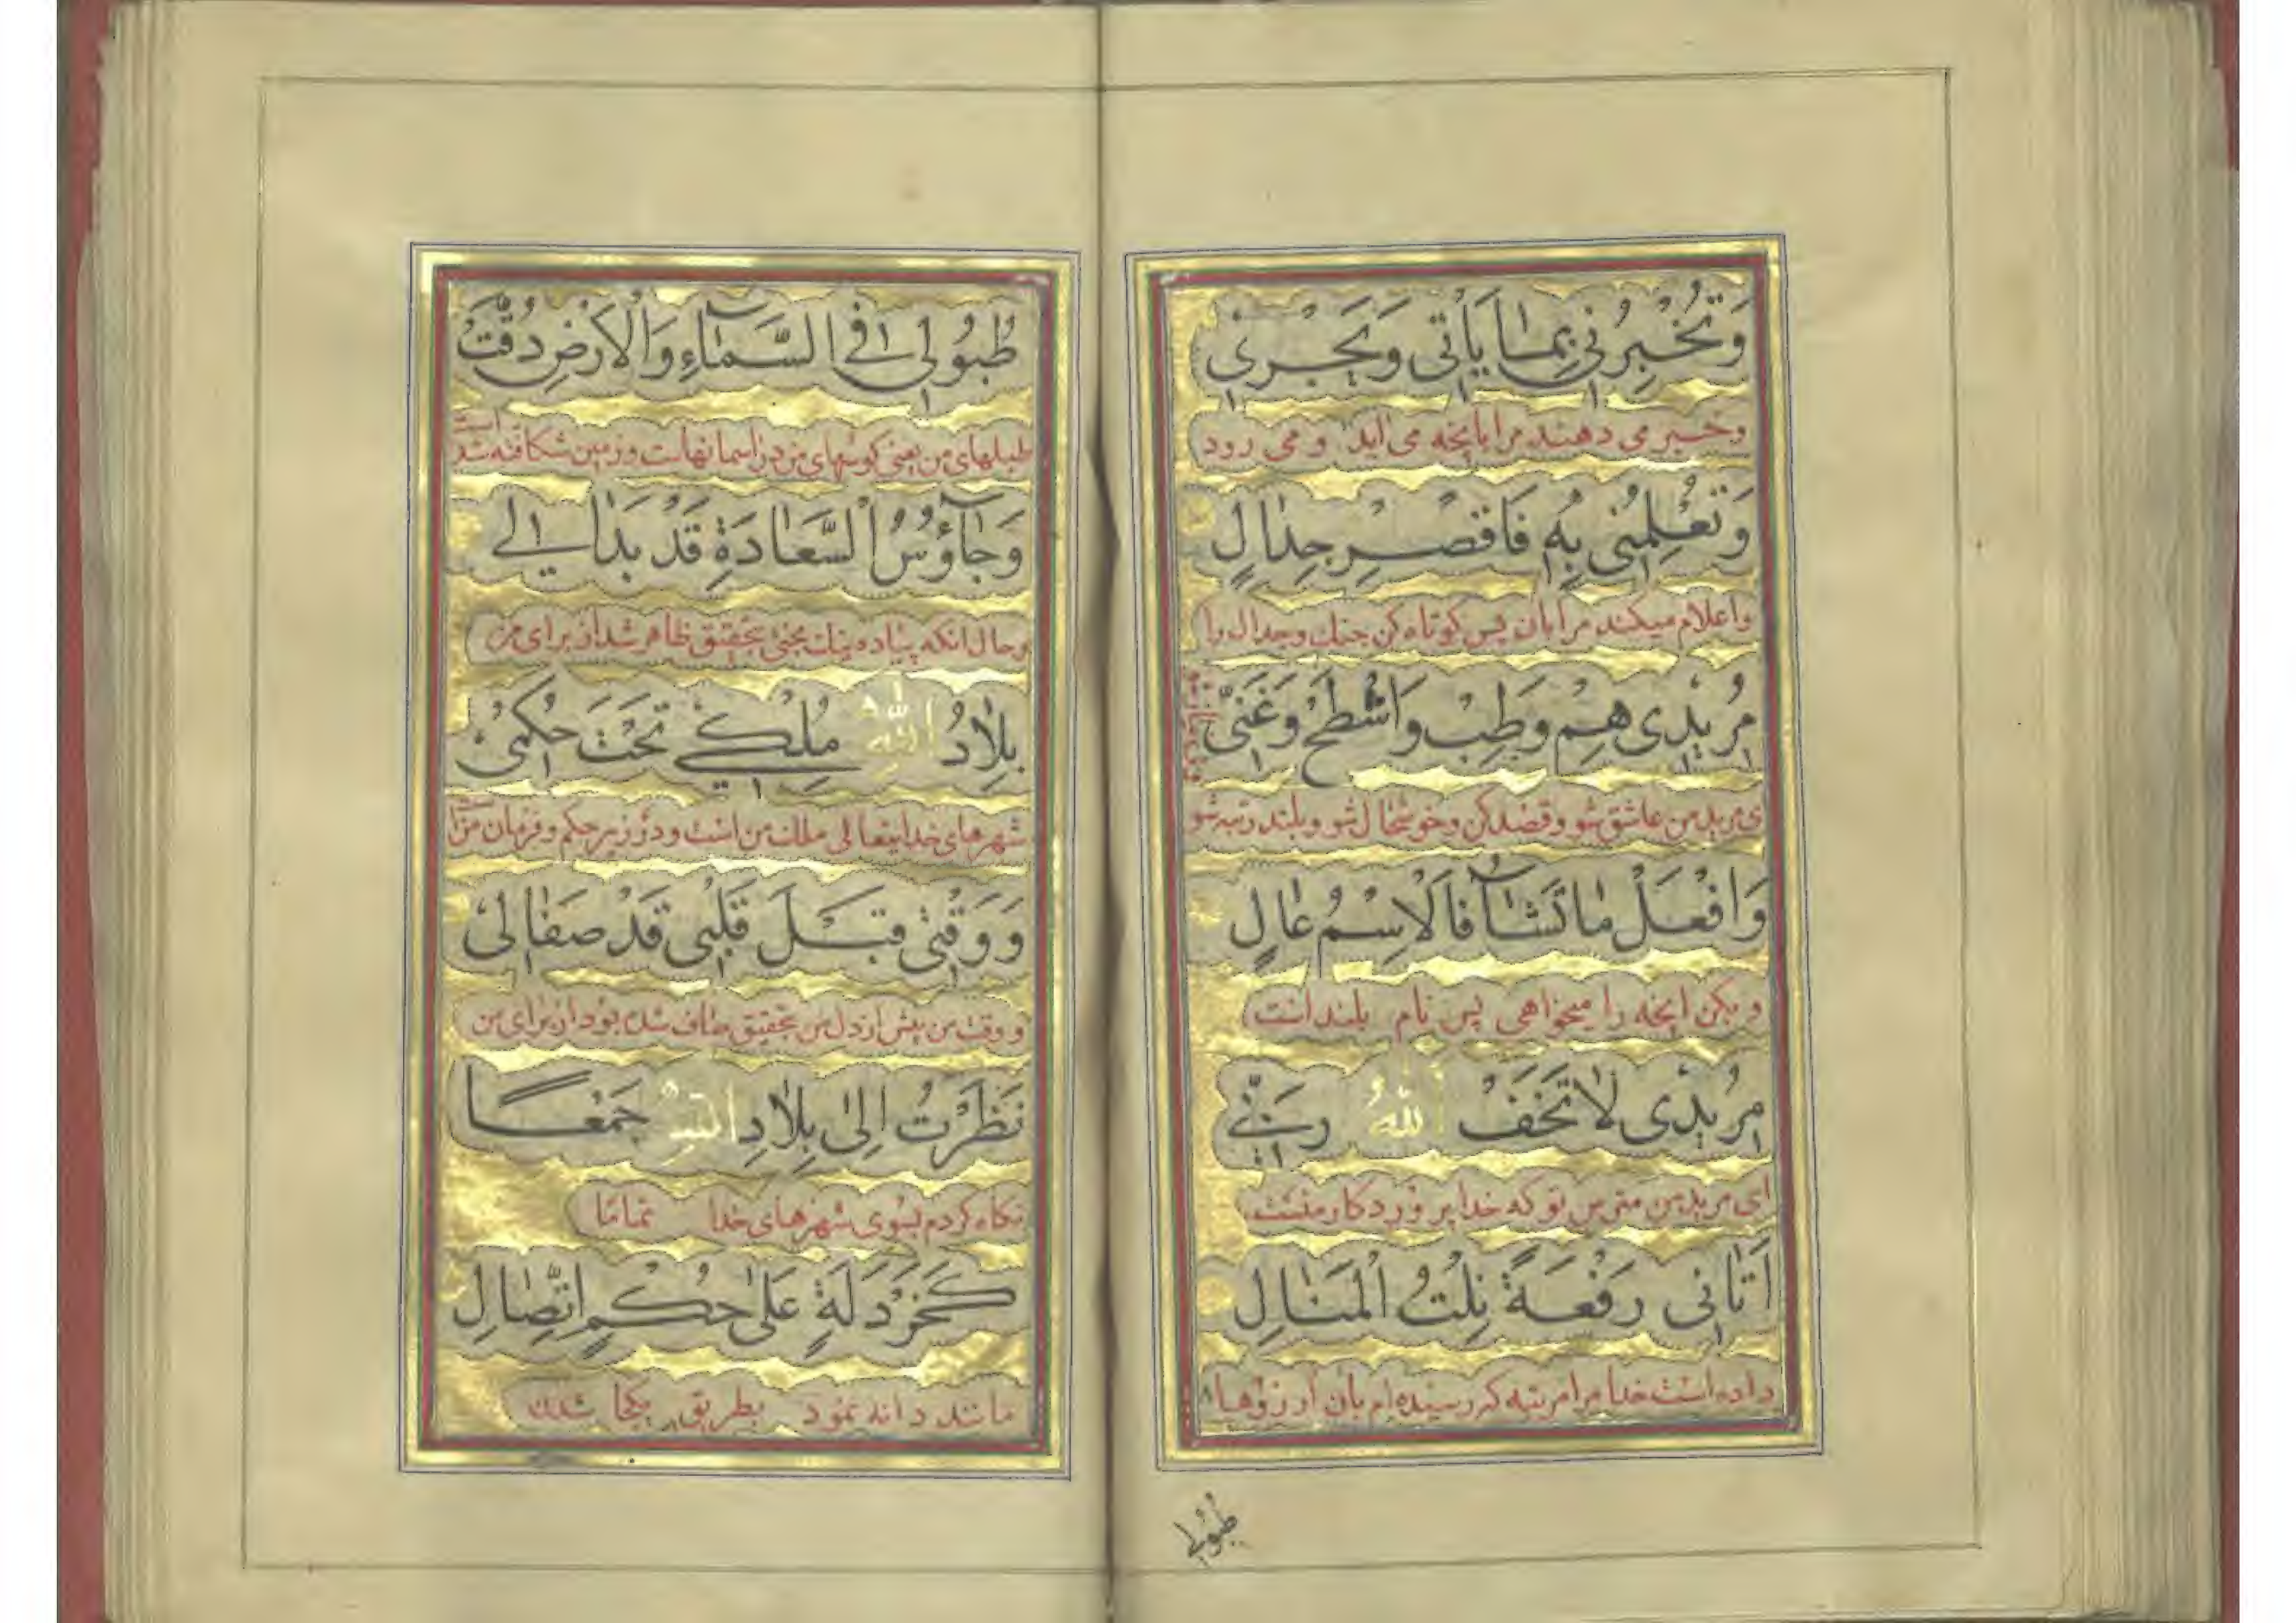 وَتُخْبِرُنِي بِمَا يَأْتِي وَيَجْرِي
وخبر می دهند مرا بانچه می اید و می رود
وَتُعْلِمُنِي بِهِ فَاقْصِرْ جِدَالِ
واعلام میکند مرا بان پس کوتاه کن جنك وجدال را
مُرِيدِي هِمْ وَطِبْ وَاشْطَحْ وَغَنِّي
ای مرید من عاشق شو و قصد کن وخوشحال شو و بلند رتبه شو
وَافْعَلْ مَا تَشَآ فَالْاِسْمُ عَالٍ
و بکن انچه را میخواهی پس نام بلند است
مُرِيدِي لَا تَخَفْ اَللّٰهُ رَبِّي
ای مرید من مترس تو که خدا پروردکار منست
اَتَانِي رَفْعَةً نِلْتُ الْمَنَالِ
داده است خدا مرا مرتبه که رسیده ام بان ارزوها
طُبُولي
طُبُولِي فِي السَّمَآءِ وَالْاَرْضِ دُقَّتْ
طبلهای من یعنی کوسهای من در اسمانهاست و زمین شکافته شده است
وَجَآؤُسُ السَّعَادَةِ قَدْ بَدَا لِي
وحال انکه پیاده نیك بختی بتحقیق ظاهر شد از برای من
بِلَادُ اللّٰهِ مُلْكِي تَحْتَ حُكْمِي
شهرهای خدایتعالی ملك من است و در زیر حکم و فرمان من است
وَوَقْتِي قَبْلَ قَلْبِي قَدْ صَفَا لِي
و وقت من پیش از دل من بتحقیق صاف شده بود از برای من
نَظَرْتُ اِلَى بِلَادِ اللّٰهِ جَمْعًا
نکاه کردم بسوی شهرهای خدا تماما
كَخَرْدَلَةٍ عَلَى حُكْمِ اتِّصَالِ
مانند دانه بطریق یکجا شدن